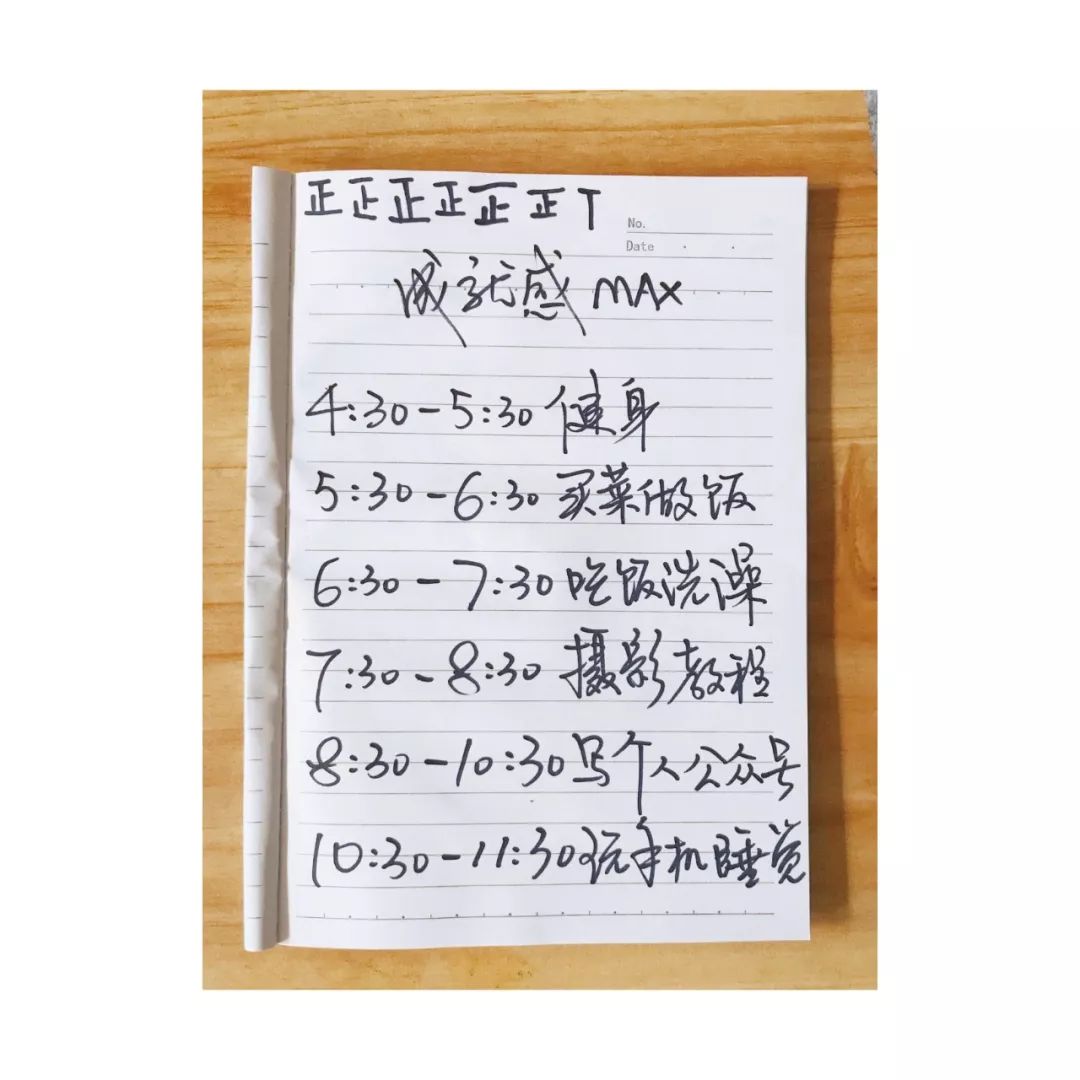 正正正正正正T
No.
Date
成就感MAX
4:30-5:30健身
5:30-6:30买菜做饭
6:30-7:30吃饭洗澡
7:30-8:30摄影教程
8:30-10:30写个人公众号
10:30-11:30玩手机睡觉